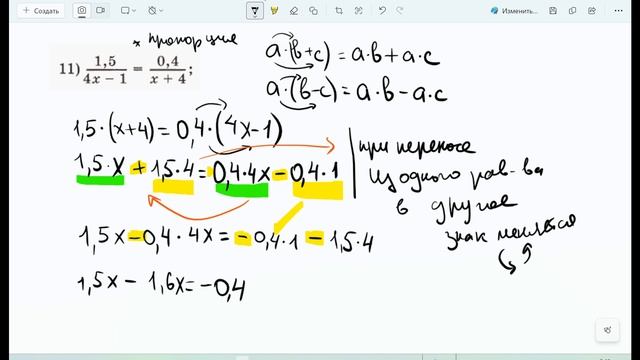 Создать
Изменить...
* пропорция
11) 1,5/(4x − 1) = 0,4/(x + 4);
a·(в+c) = a·в + a·c
a·(в−c) = a·в − a·c
1,5·(x+4) = 0,4·(4x−1)
1,5·x + 1,5·4 = 0,4·4x − 0,4·1
при переносе
из одного рав-ва
в другое
знак меняется
1,5x − 0,4·4x = − 0,4·1 − 1,5·4
1,5x − 1,6x = −0,4